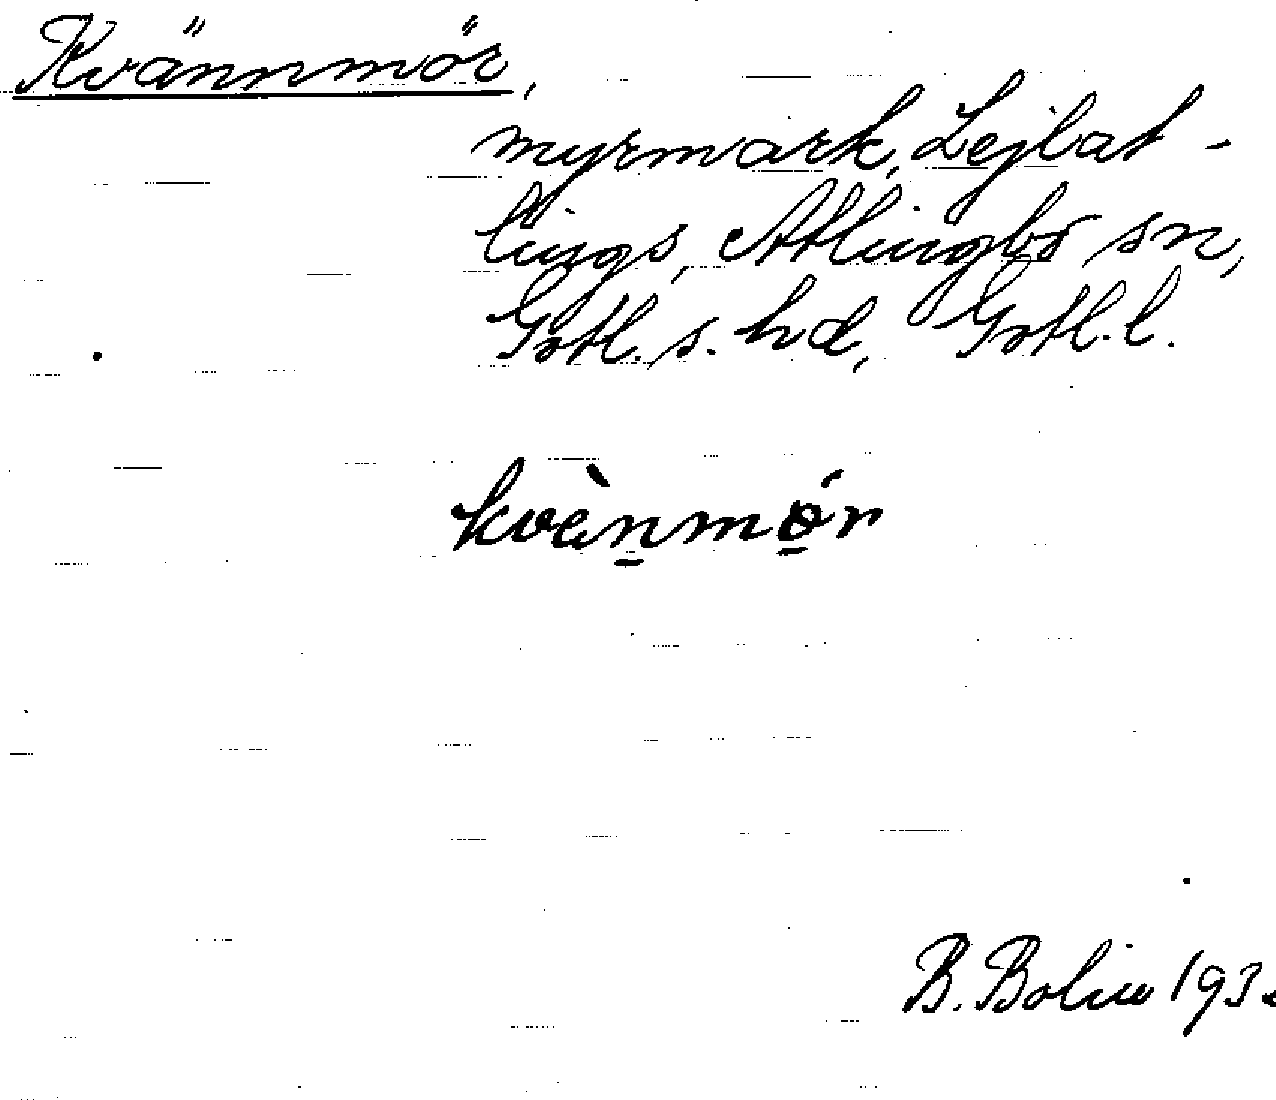 Kvännmör,
myrmark, Lejlat-
lings, Atlingbo sn,
Gotl. s. hd, Gotl. l.
kvènmǿr
B. Bolin 193